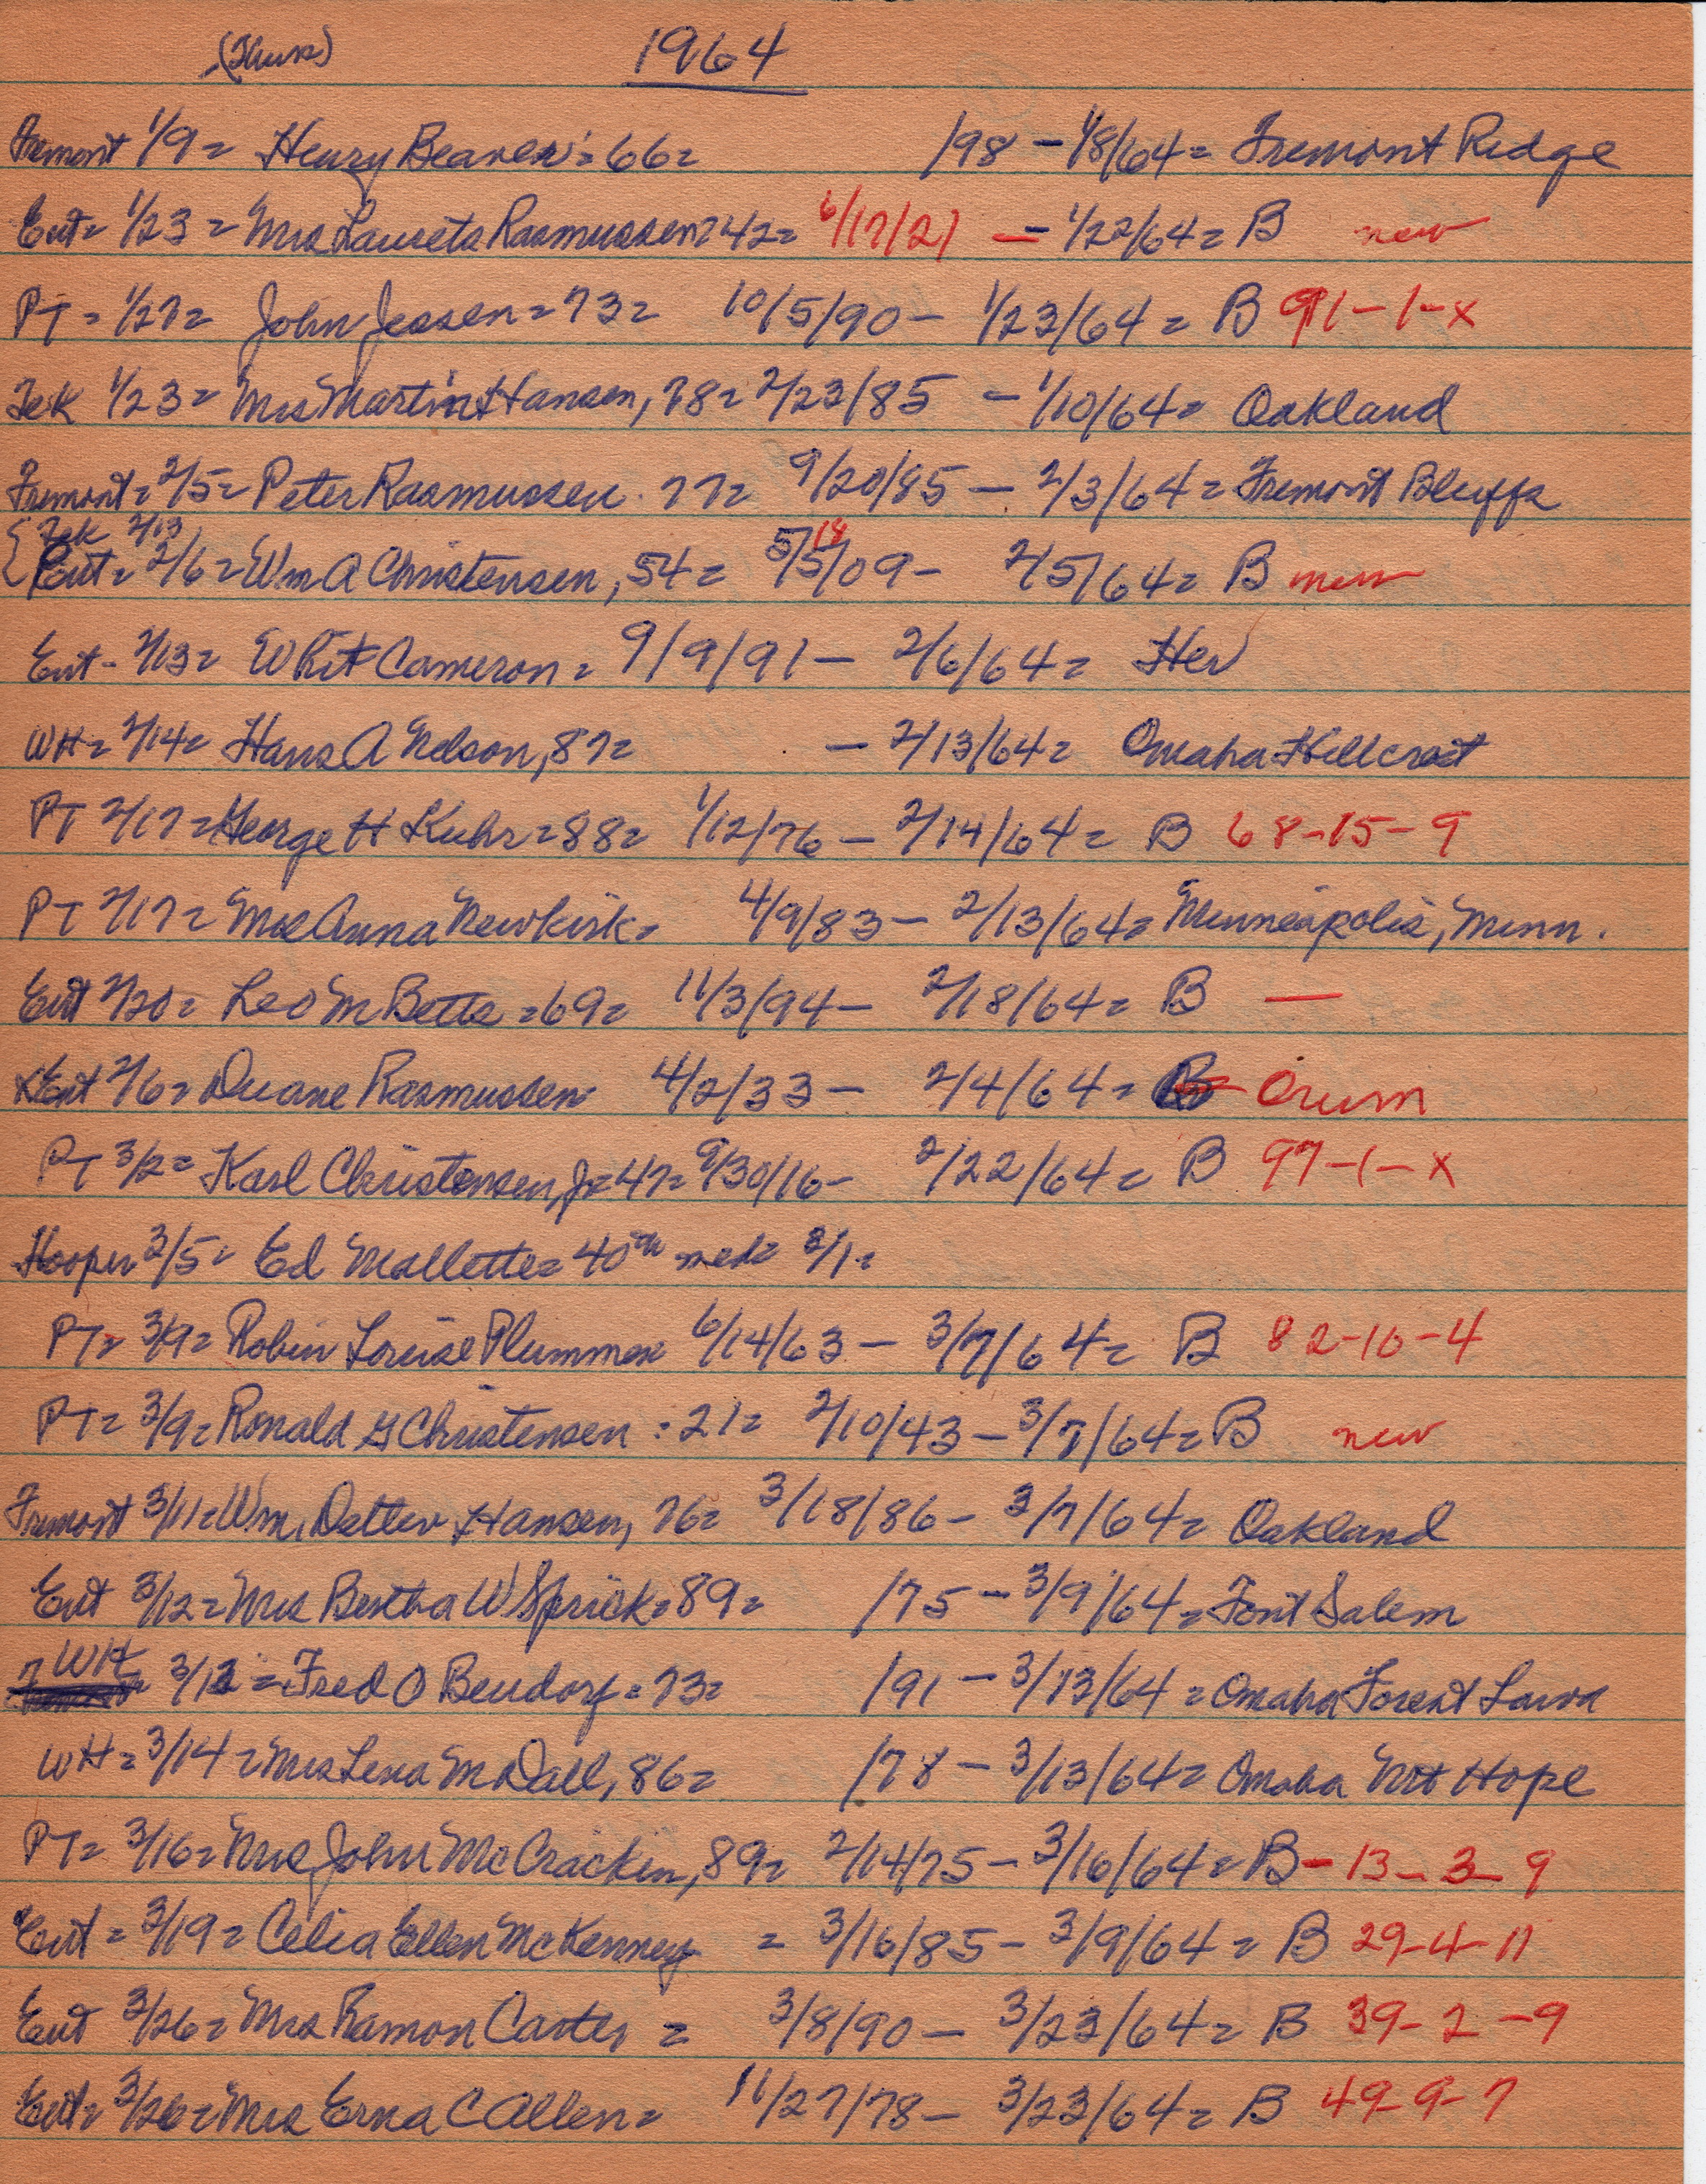 (Thurs) 1964
Fremont 1/9 = Henry Beaver = 66 = /98 - 1/8/64 = Fremont Ridge
Ent = 1/23 = Mrs Laureta Rasmussen = 42 = 6/17/21 - 1/22/64 = B new
PT = 1/27 = John Jessen = 73 = 10/5/90 - 1/23/64 = B 91-1-x
Tek 1/23 = Mrs Martin Hansen, 78 = 2/23/85 - 1/10/64 = Oakland
Fremont = 2/5 = Peter Rasmussen. 77 = 9/20/85 - 2/3/64 = Fremont Bluffs
{Tek 2/13
Ent = 2/6 = Wm A Christensen, 54 = 5/5/09 - 2/5/64 = B new
18
Ent - 2/13 = Whit Cameron = 9/9/91 - 2/6/64 = Her
WH = 2/14 = Hans A Nelson, 87 = - 2/13/64 = Omaha Hillcrest
PT 2/17 = George H Kuhr = 88 = 1/12/76 - 2/14/64 = B 68-15-9
PT 2/17 = Mrs Anna Newkirk = 4/9/83 - 2/13/64 = Minneapolis, Minn.
Ent 2/20 = Leo M Betts = 69 = 11/3/94 - 2/18/64 = B —
x Ent 2/6 = Duane Rasmussen 4/2/33 - 2/4/64 = B Orum
PT 3/2 = Karl Christensen, Jr = 47 = 9/30/16 - 2/22/64 = B 97-1-x
Hooper 3/5 = Ed Mallette = 40th wed = 3/1 =
PT = 3/9 = Robin Louise Plummer 6/14/63 - 3/7/64 = B 82-16-4
PT = 3/9 = Ronald G Christensen = 21 = 2/10/43 - 3/7/64 = B new
Fremont 3/11 = Wm. Detlev Hansen, 76 = 3/18/86 - 3/7/64 = Oakland
Ent 3/12 = Mrs Bertha W Sprick = 89 = /75 - 3/9/64 = Font Salem
WH 3/13 = Fred O Bendorf = 73 = /91 - 3/13/64 = Omaha Forest Lawn
WH = 3/14 = Mrs Lena M Dall, 86 = /78 - 3/13/64 = Omaha Mt Hope
PT = 3/16 = Mrs John McCrackin, 89 = 2/14/75 - 3/16/64 = B - 13-3-9
Ent = 3/19 = Celia Ellen McKenney = 3/16/85 - 3/9/64 = B 29-4-11
Ent 3/26 = Mrs Ramon Carter = 3/8/90 - 3/23/64 = B 39-2-9
Ent = 3/26 = Mrs Erna C Allen = 11/27/78 - 3/23/64 = B 49-9-7